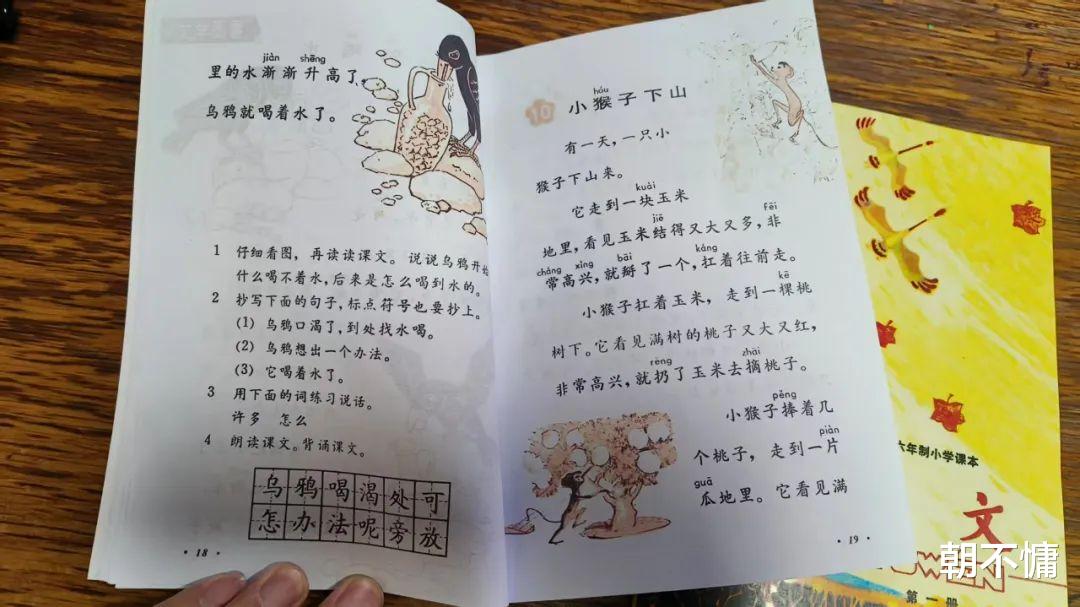 jiàn shēng
里的水渐渐升高了，
乌鸦就喝着水了。
1 仔细看图，再读读课文。说说乌鸦开始
什么喝不着水，后来是怎么喝到水的。
2 抄写下面的句子，标点符号也要抄上。
(1) 乌鸦口渴了，到处找水喝。
(2) 乌鸦想出一个办法。
(3) 它喝着水了。
3 用下面的词练习说话。
许多 怎么
4 朗读课文。背诵课文。
乌鸦喝渴处可
怎办法呢旁放
·18·
hóu
10 小猴子下山
有一天，一只小
猴子下山来。
kuài
它走到一块玉米
jiē fēi
地里，看见玉米结得又大又多，非
cháng xìng bāi káng
常高兴，就掰了一个，扛着往前走。
kē
小猴子扛着玉米，走到一棵桃
树下。它看见满树的桃子又大又红，
rēng zhāi
非常高兴，就扔了玉米去摘桃子。
pěng
小猴子捧着几
piàn
个桃子，走到一片
guā
瓜地里。它看见满
·19·
六年制小学课本
文
第一册
朝不慵